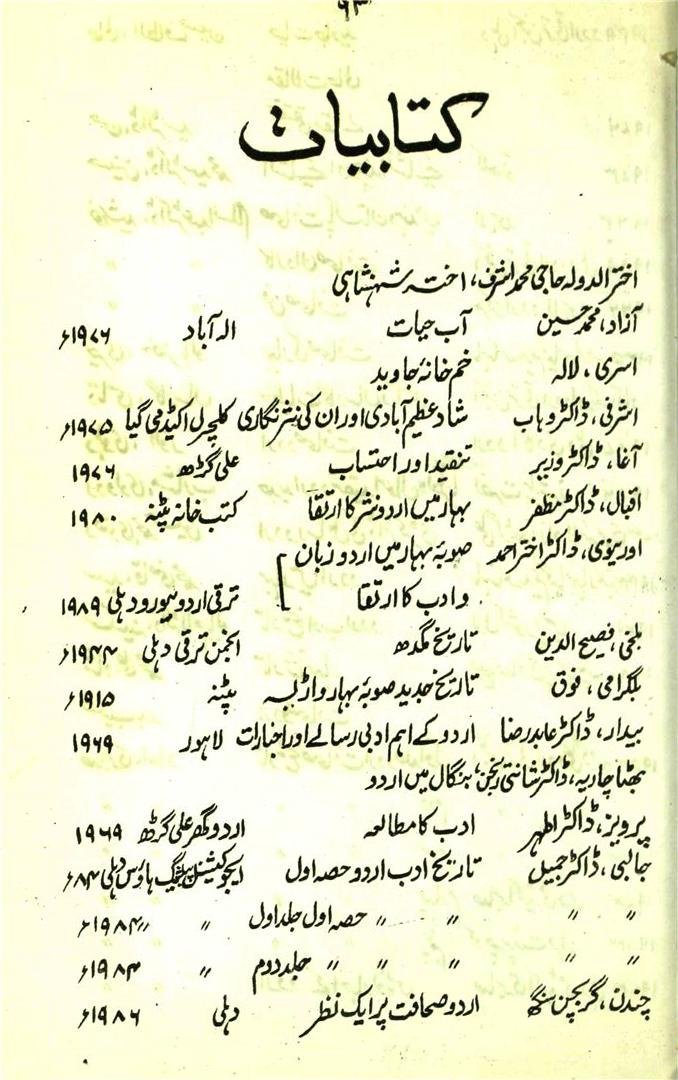 ۶۳
کتابیات
اختر الدولہ حاجی محمد اشرف، اختر شہنشاہی
آزاد، محمد حسین آب حیات الہ آباد ۱۹۷۶ء
اسری، لالہ خم خانۂ جاوید
اشرفی، ڈاکٹر وہاب شاد عظیم آبادی اور ان کی نثر نگاری کلچرل اکیڈمی گیا ۱۹۷۵ء
آغا، ڈاکٹر وزیر تنقید اور احتساب علی گڑھ ۱۹۷۶
اقبال، ڈاکٹر مظفر بہار میں اردو نثر کا ارتقا کتب خانہ پٹنہ ۱۹۸۰
اورینوی، ڈاکٹر اختر احمد صوبۂ بہار میں اردو زبان
و ادب کا ارتقا ترقی اردو بیورو دہلی ۱۹۸۹
بلخی، فصیح الدین تاریخ مگدھ انجمن ترقی دہلی ۱۹۴۴ء
بلگرامی، فوق تاریخ جدید صوبۂ بہار و اڑیسہ پٹنہ ۱۹۱۵ء
بیدار، ڈاکٹر عابد رضا اردو کے اہم ادبی رسالے اور اخبارات لاہور ۱۹۶۹
بھٹاچاریہ، ڈاکٹر شانتی رنجن، بنگال میں اردو
پرویز، ڈاکٹر اطہر ادب کا مطالعہ اردو گھر علی گڑھ ۱۹۶۹
جالبی، ڈاکٹر جمیل تاریخ ادب اردو حصہ اول ایجوکیشنل پبلشنگ ہاؤس دہلی ۸۴ء
〃 〃 〃 〃 حصہ اول جلد اول 〃 〃 ۱۹۸۴ء
〃 〃 〃 〃 〃 〃 جلد دوم 〃 ۱۹۸۴ء
چندن، گربچن سنگھ اردو صحافت پر ایک نظر دہلی ۱۹۸۶ء